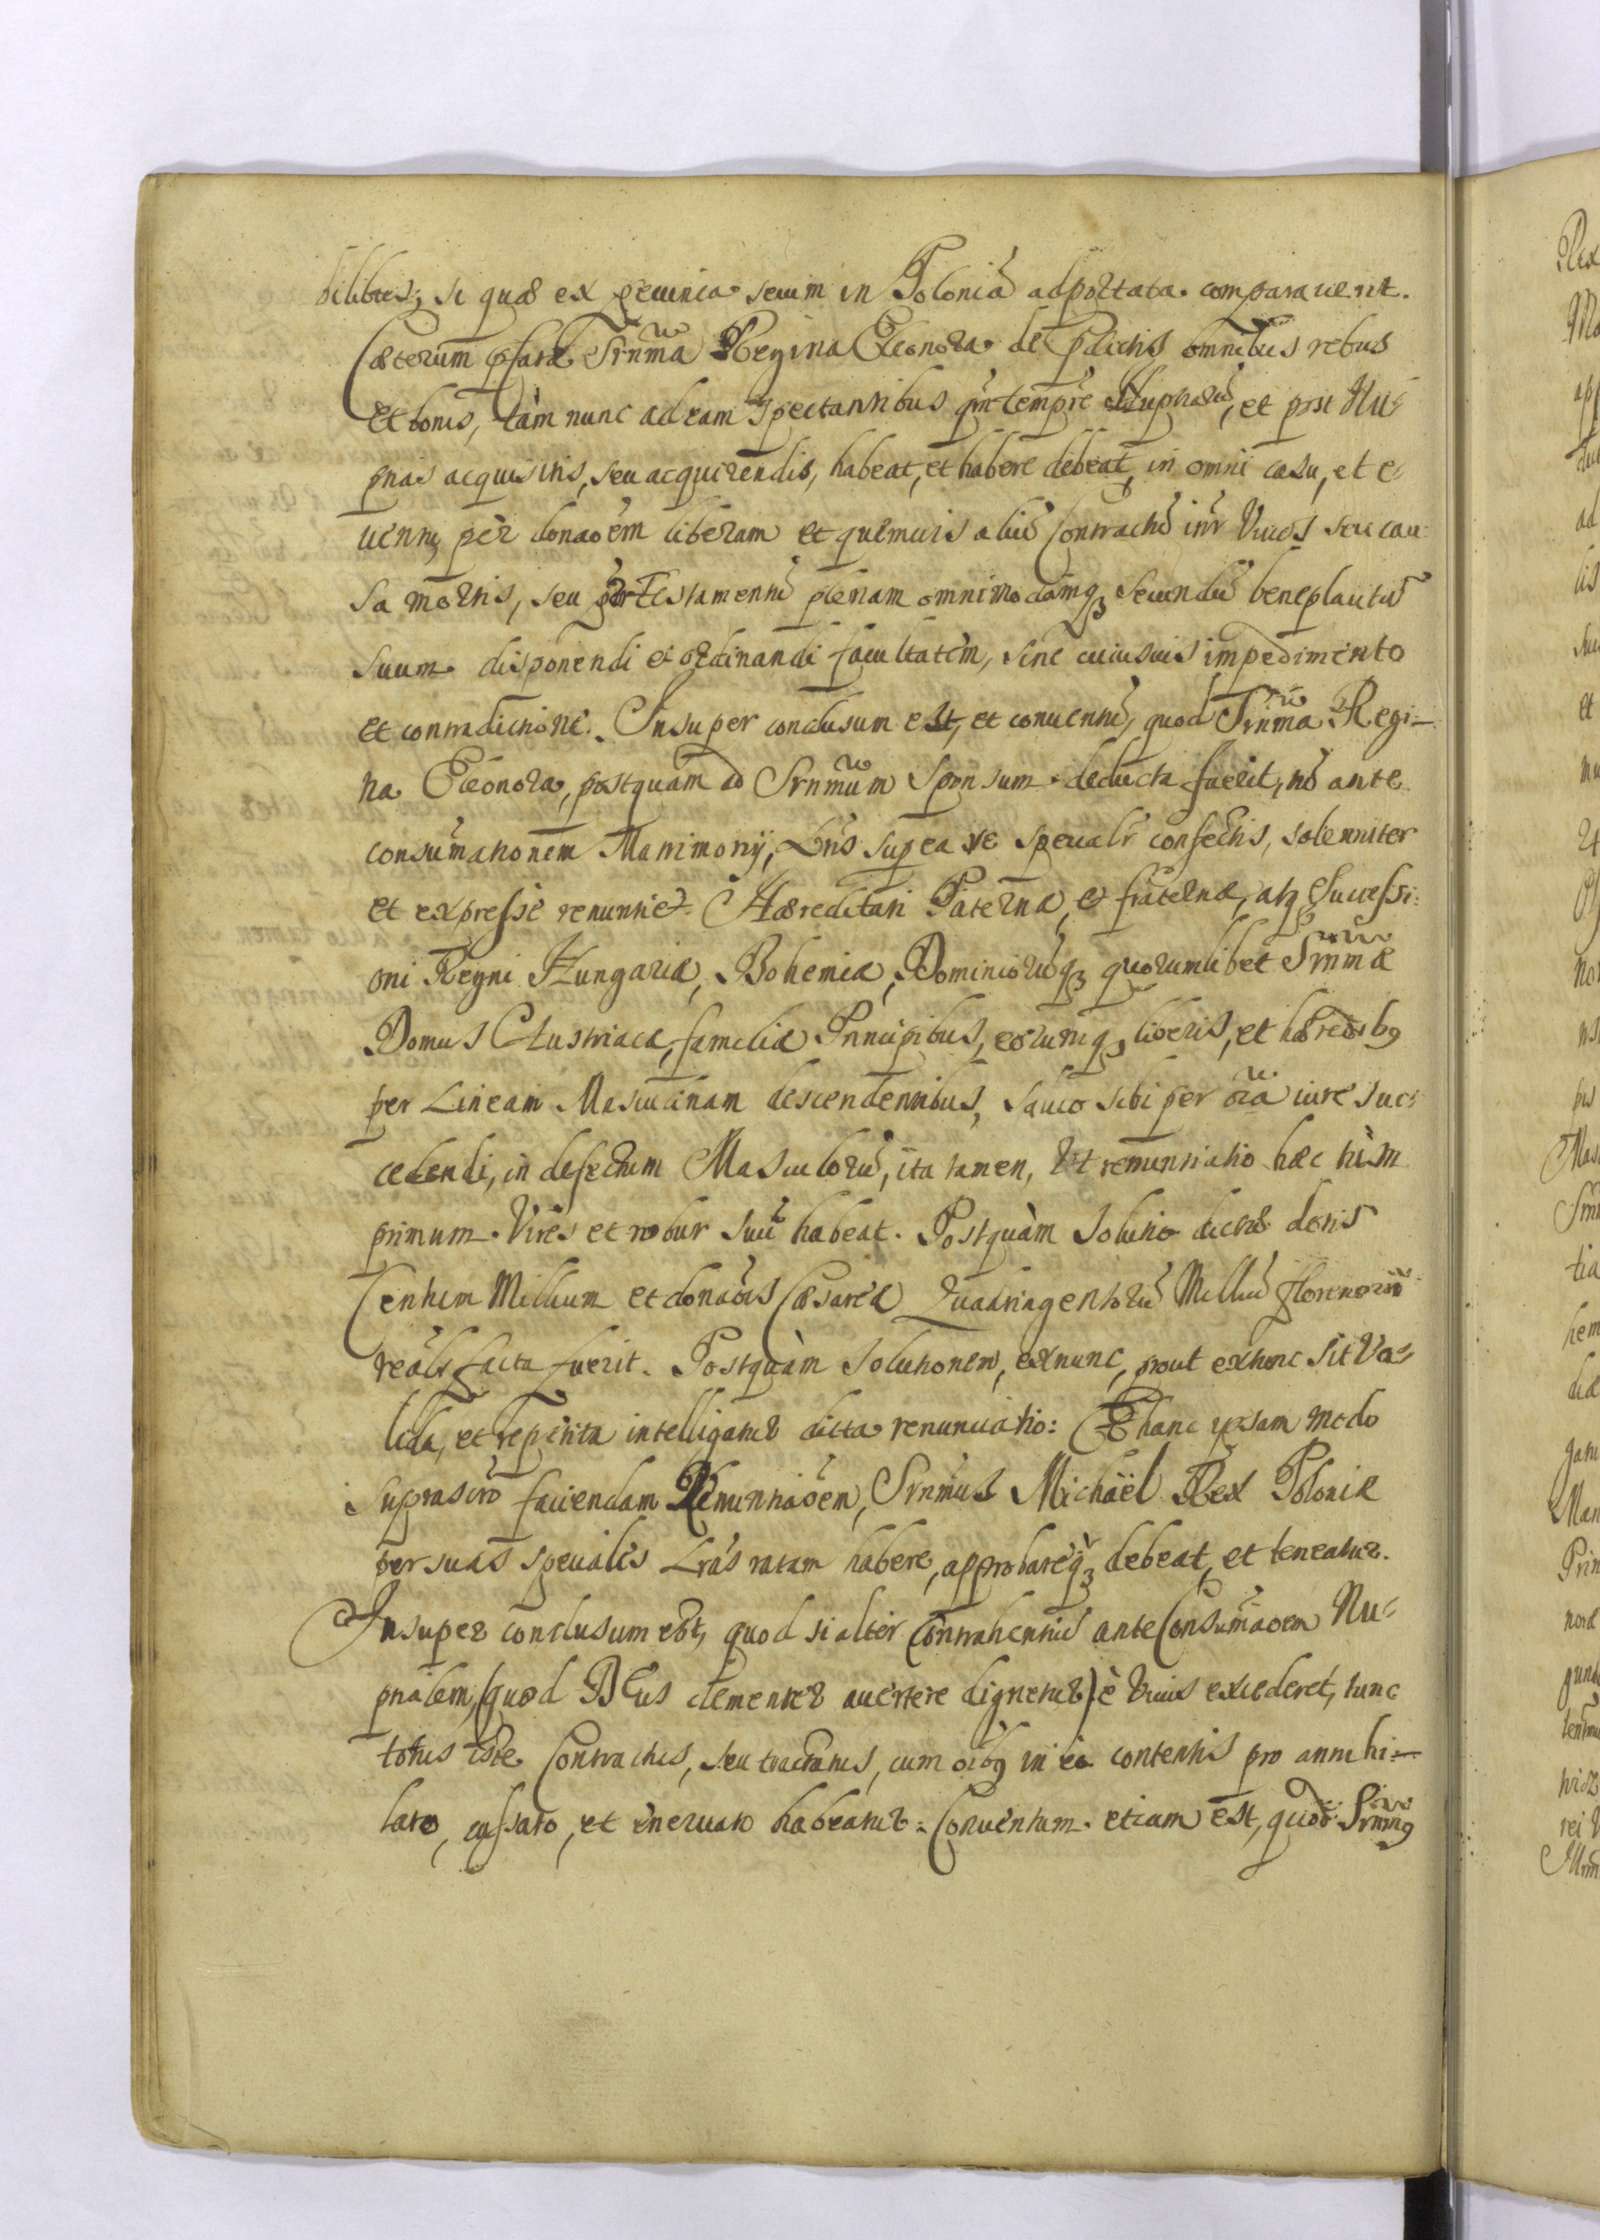 bilibus, si quæ ex pecunia secum in Poloniã adportata comparauerit.
Cæterum pfata Srnma Regina Eleonora de pdictis omnibus rebus
et bonis, tàm nunc ad eam spectantibus qm tempre Nuptiarũ, et post Nu-
ptias acquisitis, seu acquirendis, habeat, et habere debeat, in omni casu, et e-
uentu, pèr donaõem liberam et quemuis aliũ Contractũ intr Viuos seu cau-
sa mortis, seu per Testamentũ plenam omnimodamq3 secundũ beneplacitũ
suum disponendi et ordinandi facultatem, sine cuiusuis impedimento
et contradictione. Insuper conclusum est, et conuentũ, quod Srnma Regi-
na Eleonora, postquam ad Srnmum Sponsum deducta fuerit, nõ ante
consũmationem Matrimonij, Lris super ea re specialr confectis, solenniter
et expressè renuntiet. Hæreditati Paternæ, et fraternæ, atq3 Successi-
oni Regni Hungariæ, Bohemiæ, Dominiorũq3 quorumlibet Srnmæ
Domus Austriacæ, familiæ Principibus, eorumq3 liberis, et hæredibq
per Lineam Masculinam descendentibus, saluo sibi per oĩa iure suc-
cedendi, in defectum Masculorũ, ita tamen, Ut renuntiatio hæc tùm
primum Vires et robur suũ habeat. Postquàm Solutio dictæ dotis
Centum Millium et donaõis Cæsareæ Quadringentorũ Milliũ florenorũ
realr facta fuerit. Postquàm Solutionem, exnunc, prout extunc sit Va-
lida, et repetita intelligatur dicta renunciatio: Et hanc ipsam modo
suprascto faciendam Renuntiaõem, Srnmus Michaël Rex Poloniæ
per suas speciales Lras ratam habere, approbareq3 debeat, et teneatur.
Insuper conclusum est, quod si alter Contrahentiũ ante Consũmaõem Nu-
ptialem, (quod DEus clementer auertere dignetur) è Viuis excederet, tunc
totus iste Contractus, seu tractatus, cum oĩbq in eo contentis pro annihi-
lato, cassato, et eneruato habeatur. Conuentum etiam est, quod Srnmq